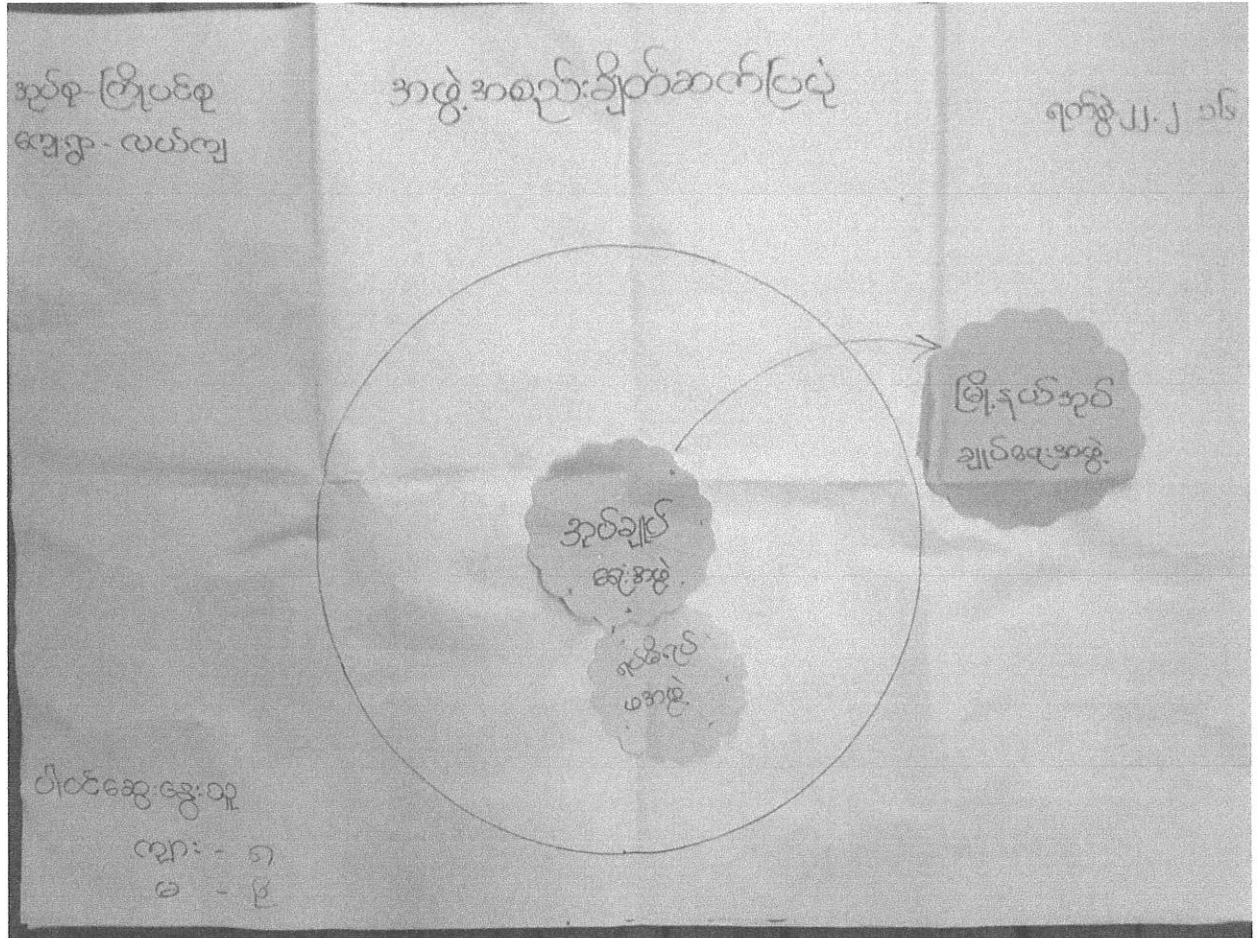 အုပ်စု - ကြိုပင်စု
ကျေးရွာ - လယ်ကျ
အဖွဲ့အစည်းချိတ်ဆက်ပြပုံ
ရက်စွဲ ၂၂.၂ ၁၆
မြို့နယ်အုပ်
ချုပ်ရေးအဖွဲ့
အုပ်ချုပ်
ရေးအဖွဲ့
ရပ်မိရပ်
ဖအဖွဲ့
ပါဝင်ဆွေးနွေးသူ
ကျား - ၅
မ - ၉